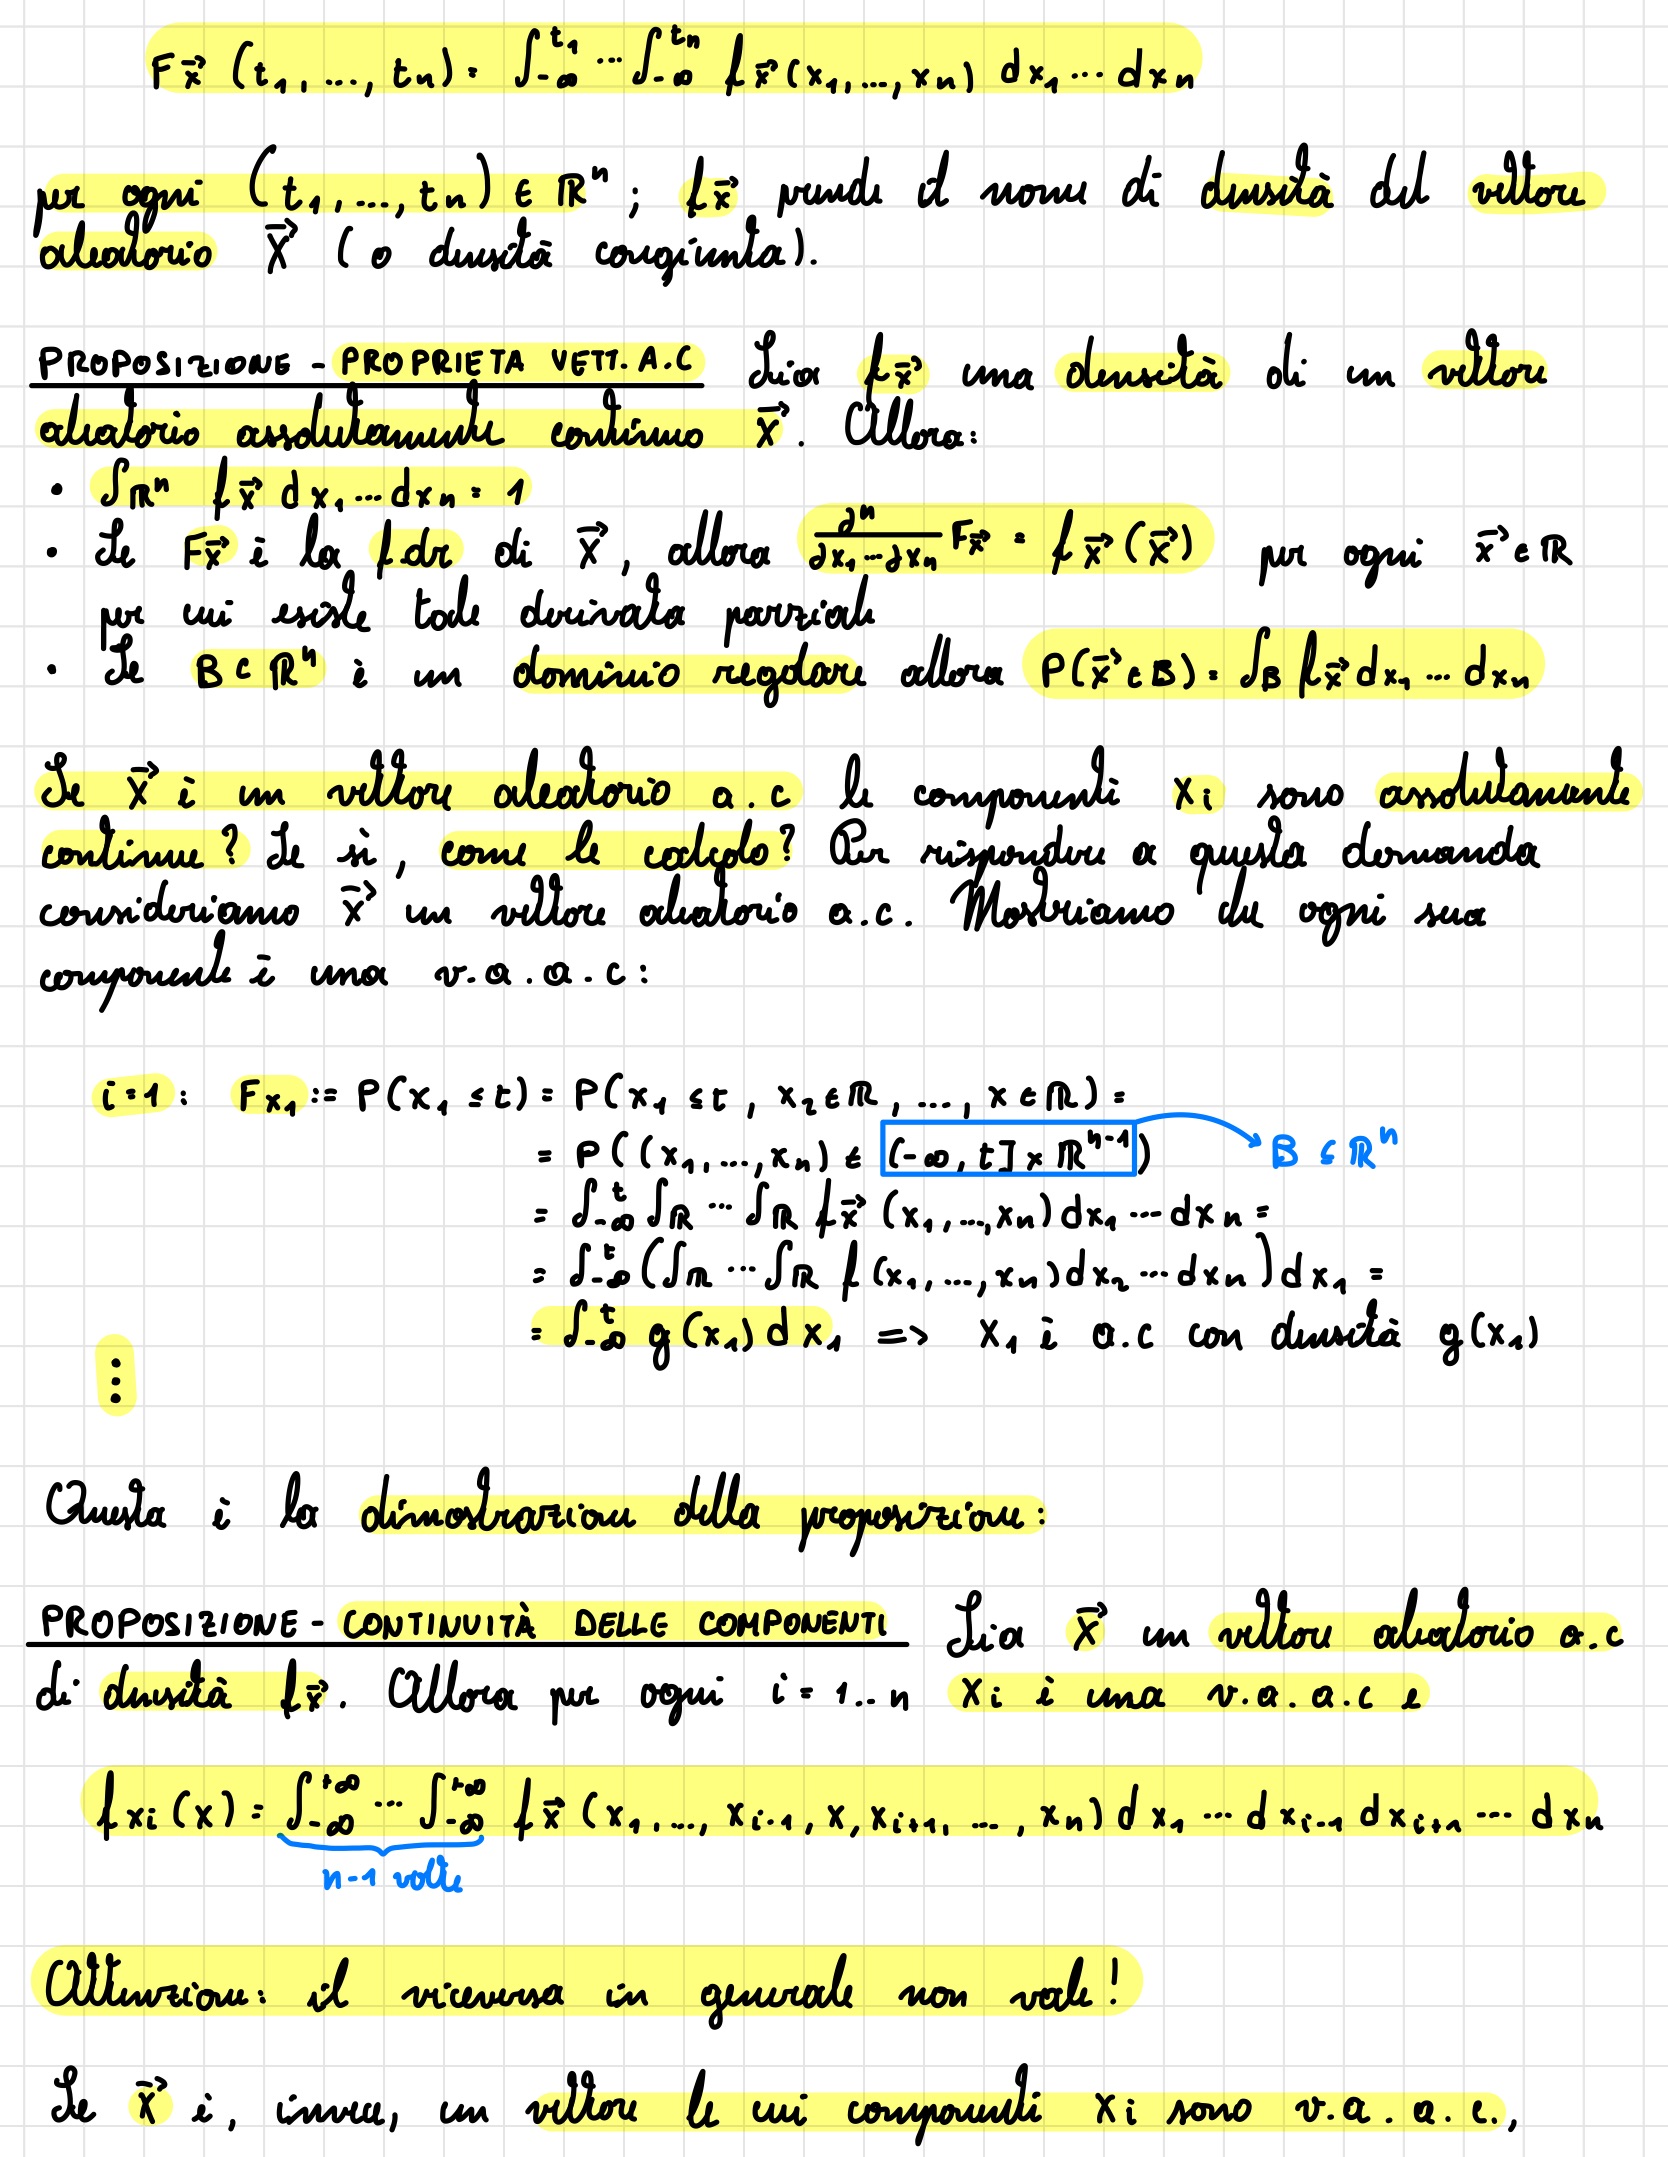 F_X⃗ (t₁, ..., tₙ) = ∫_{-∞}^{t₁} ... ∫_{-∞}^{tₙ} f_X⃗ (x₁, ..., xₙ) dx₁ ... dxₙ
per ogni (t₁, ..., tₙ) ∈ ℝⁿ ; f_X⃗ prende il nome di densità del vettore
aleatorio X⃗ (o densità congiunta).
PROPOSIZIONE - PROPRIETA VETT. A.C Sia f_X⃗ una densità di un vettore
aleatorio assolutamente continuo X⃗. Allora:
• ∫_ℝⁿ f_X⃗ dx₁ ... dxₙ = 1
• Se F_X⃗ è la f.dr di X⃗, allora ∂ⁿ/∂x₁...∂xₙ F_X⃗ = f_X⃗ (x⃗) per ogni x⃗ ∈ ℝ
per cui esiste tale derivata parziale
• Se B ⊂ ℝⁿ è un dominio regolare allora P(X⃗ ∈ B) = ∫_B f_X⃗ dx₁ ... dxₙ
Se X⃗ è un vettore aleatorio a.c le componenti Xi sono assolutamente
continue? Se sì, come le calcolo? Per rispondere a questa domanda
consideriamo X⃗ un vettore aleatorio a.c. Mostriamo che ogni sua
componente è una v.a.a.c:
i=1: F_X₁ := P(X₁ ≤ t) = P(X₁ ≤ t, X₂ ∈ ℝ, ..., X ∈ ℝ) =
= P((X₁, ..., Xₙ) ∈ (-∞, t] × ℝⁿ⁻¹) → B ⊆ ℝⁿ
= ∫_{-∞}^{t} ∫_ℝ ... ∫_ℝ f_X⃗ (x₁, ..., xₙ) dx₁ ... dxₙ =
= ∫_{-∞}^{t} (∫_ℝ ... ∫_ℝ f (x₁, ..., xₙ) dx₂ ... dxₙ) dx₁ =
= ∫_{-∞}^{t} g(x₁) dx₁ => X₁ è a.c con densità g(x₁)
⋮
Questa è la dimostrazione della proposizione:
PROPOSIZIONE - CONTINUITÀ DELLE COMPONENTI Sia X⃗ un vettore aleatorio a.c
di densità f_X⃗. Allora per ogni i = 1..n Xi è una v.a.a.c e
f_Xi (x) = ∫_{-∞}^{+∞} ... ∫_{-∞}^{+∞} f_X⃗ (x₁, ..., x_{i-1}, x, x_{i+1}, ..., xₙ) dx₁ ... dx_{i-1} dx_{i+1} ... dxₙ
n-1 volte
Attenzione: il viceversa in generale non vale!
Se X⃗ è, invece, un vettore le cui componenti Xi sono v.a.a.c.,